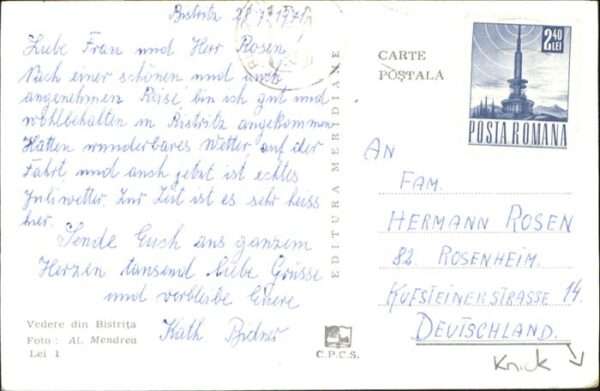 Bistritz
Liebe Frau und Herr Rosen!
Nach einer schönen und auch
angenehmen Reise, bin ich gut und
wohlbehalten in Bistritz angekommen.
Hatten wunderbares Wetter, auf der
Fahrt, und auch jetzt ist echtes
Juliwetter. Zur Zeit ist es sehr heiss
hier.
Sende Euch aus ganzem
Herzen tausend liebe Grüsse
und verbleibe Euere
Kath
Vedere din Bistrița
Foto: Al. Mendrea
Lei 1
EDITURA MERIDIANE
C.P.C.S.
CARTE
POȘTALĂ
2,40
LEI
POSTA ROMANA
AN
FAM.
HERMANN ROSEN
82. ROSENHEIM.
KUFSTEINERSTRASSE 14.
DEUTSCHLAND.
Knick